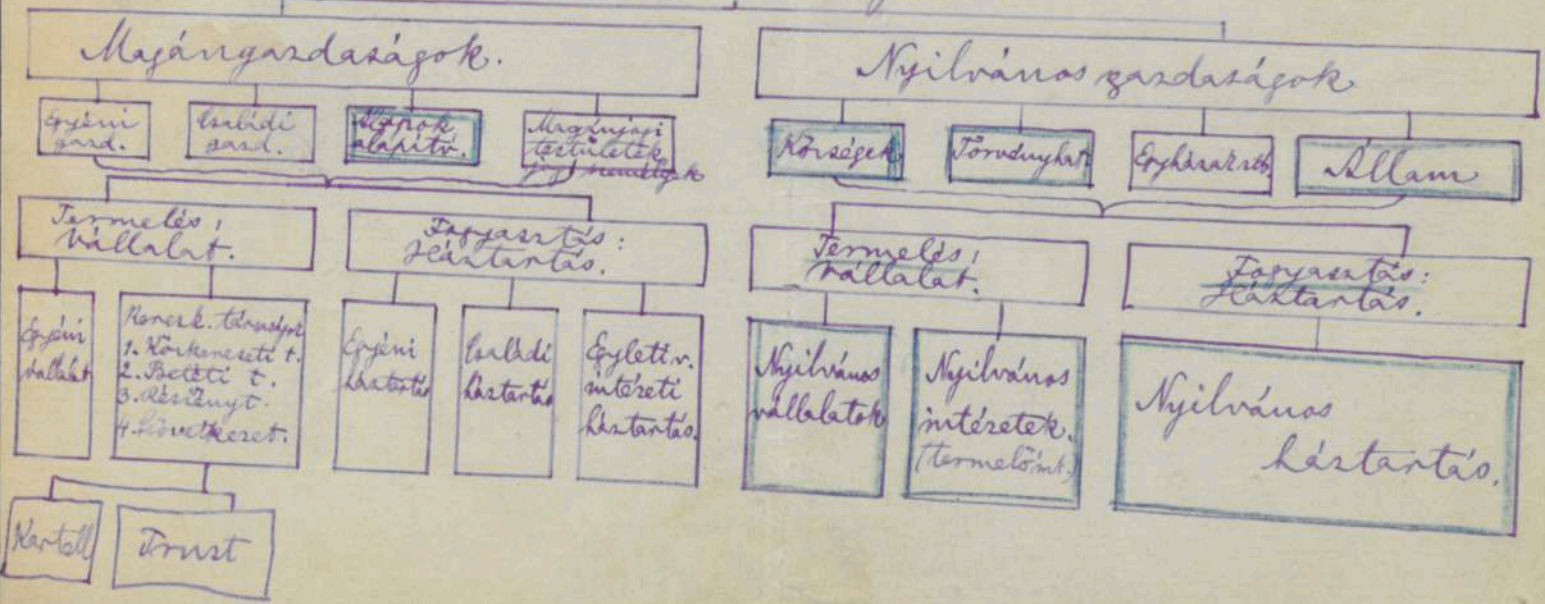 Magángazdaságok.
Nyilvános gazdaságok
Egyéni
gazd.
Családi
gazd.
Alapok
alapítv.
Magánjogi
testületek
Községek
Törvényhat.
Állam
Termelés:
Vállalat.
Fogyasztás:
Háztartás.
Termelés:
Vállalat.
Fogyasztás:
Háztartás.
Egyéni
vállalat
Keresk. társaságok
1. Közkereseti t.
2. Betéti t.
3. Részvényt.
4. Szövetkezet.
Egyéni
háztartás
Családi
háztartás
Egyleti v.
intézeti
háztartás.
Nyilvános
vállalatok
Nyilvános
intézetek.
(termelőint.)
Nyilvános
háztartás.
Kartell
Trust